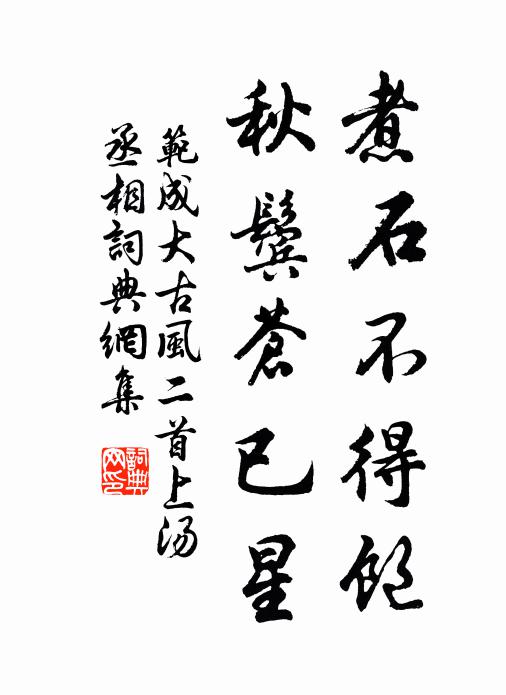 煮石不得飽
秋鬢蒼已星
範成大古風二首上湯
丞相詞典網集
詞典
网印